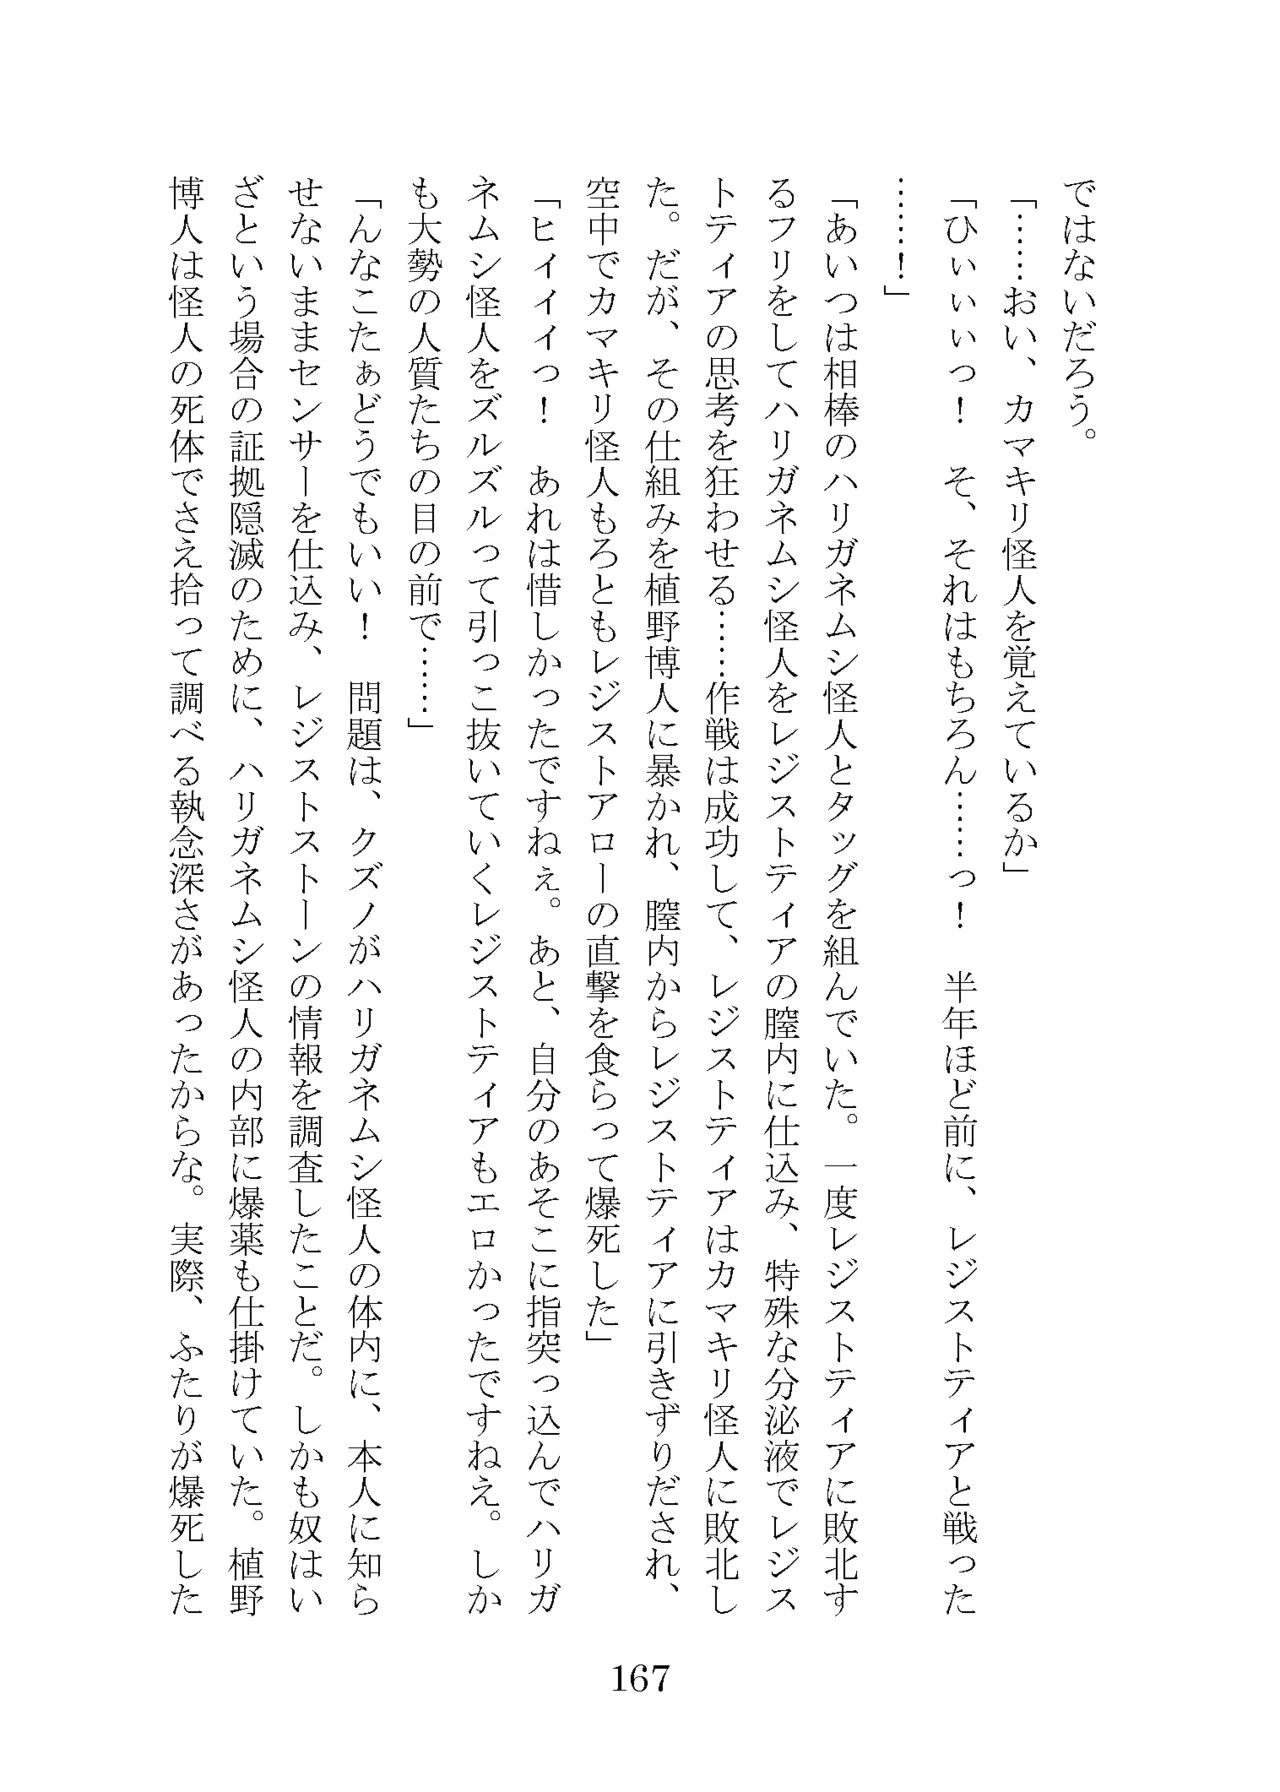 ではないだろう。
「……おい、カマキリ怪人を覚えているか」
「ひぃぃぃっ！　そ、それはもちろん……っ！　半年ほど前に、レジスティアと戦った
……！」
「あいつは相棒のハリガネムシ怪人とタッグを組んでいた。一度レジストティアに敗北す
るフリをしてハリガネムシ怪人をレジストティアの膣内に仕込み、特殊な分泌液でレジス
トティアの思考を狂わせる……作戦は成功して、レジストティアはカマキリ怪人に敗北し
た。だが、その仕組みを植野博人に暴かれ、膣内からレジストティアに引きずりだされ、
空中でカマキリ怪人もろともレジストアローの直撃を食らって爆死した」
「ヒィイィっ！　あれは惜しかったですねぇ。あと、自分のあそこに指突っ込んでハリガ
ネムシ怪人をズルズルって引っこ抜いていくレジストティアもエロかったですねえ。しか
も大勢の人質たちの目の前で……」
「んなこたぁどうでもいい！　問題は、クズノがハリガネムシ怪人の体内に、本人に知ら
せないままセンサーを仕込み、レジストストーンの情報を調査したことだ。しかも奴はい
ざという場合の証拠隠滅のために、ハリガネムシ怪人の内部に爆薬も仕掛けていた。植野
博人は怪人の死体でさえ拾って調べる執念深さがあったからな。実際、ふたりが爆死した
167